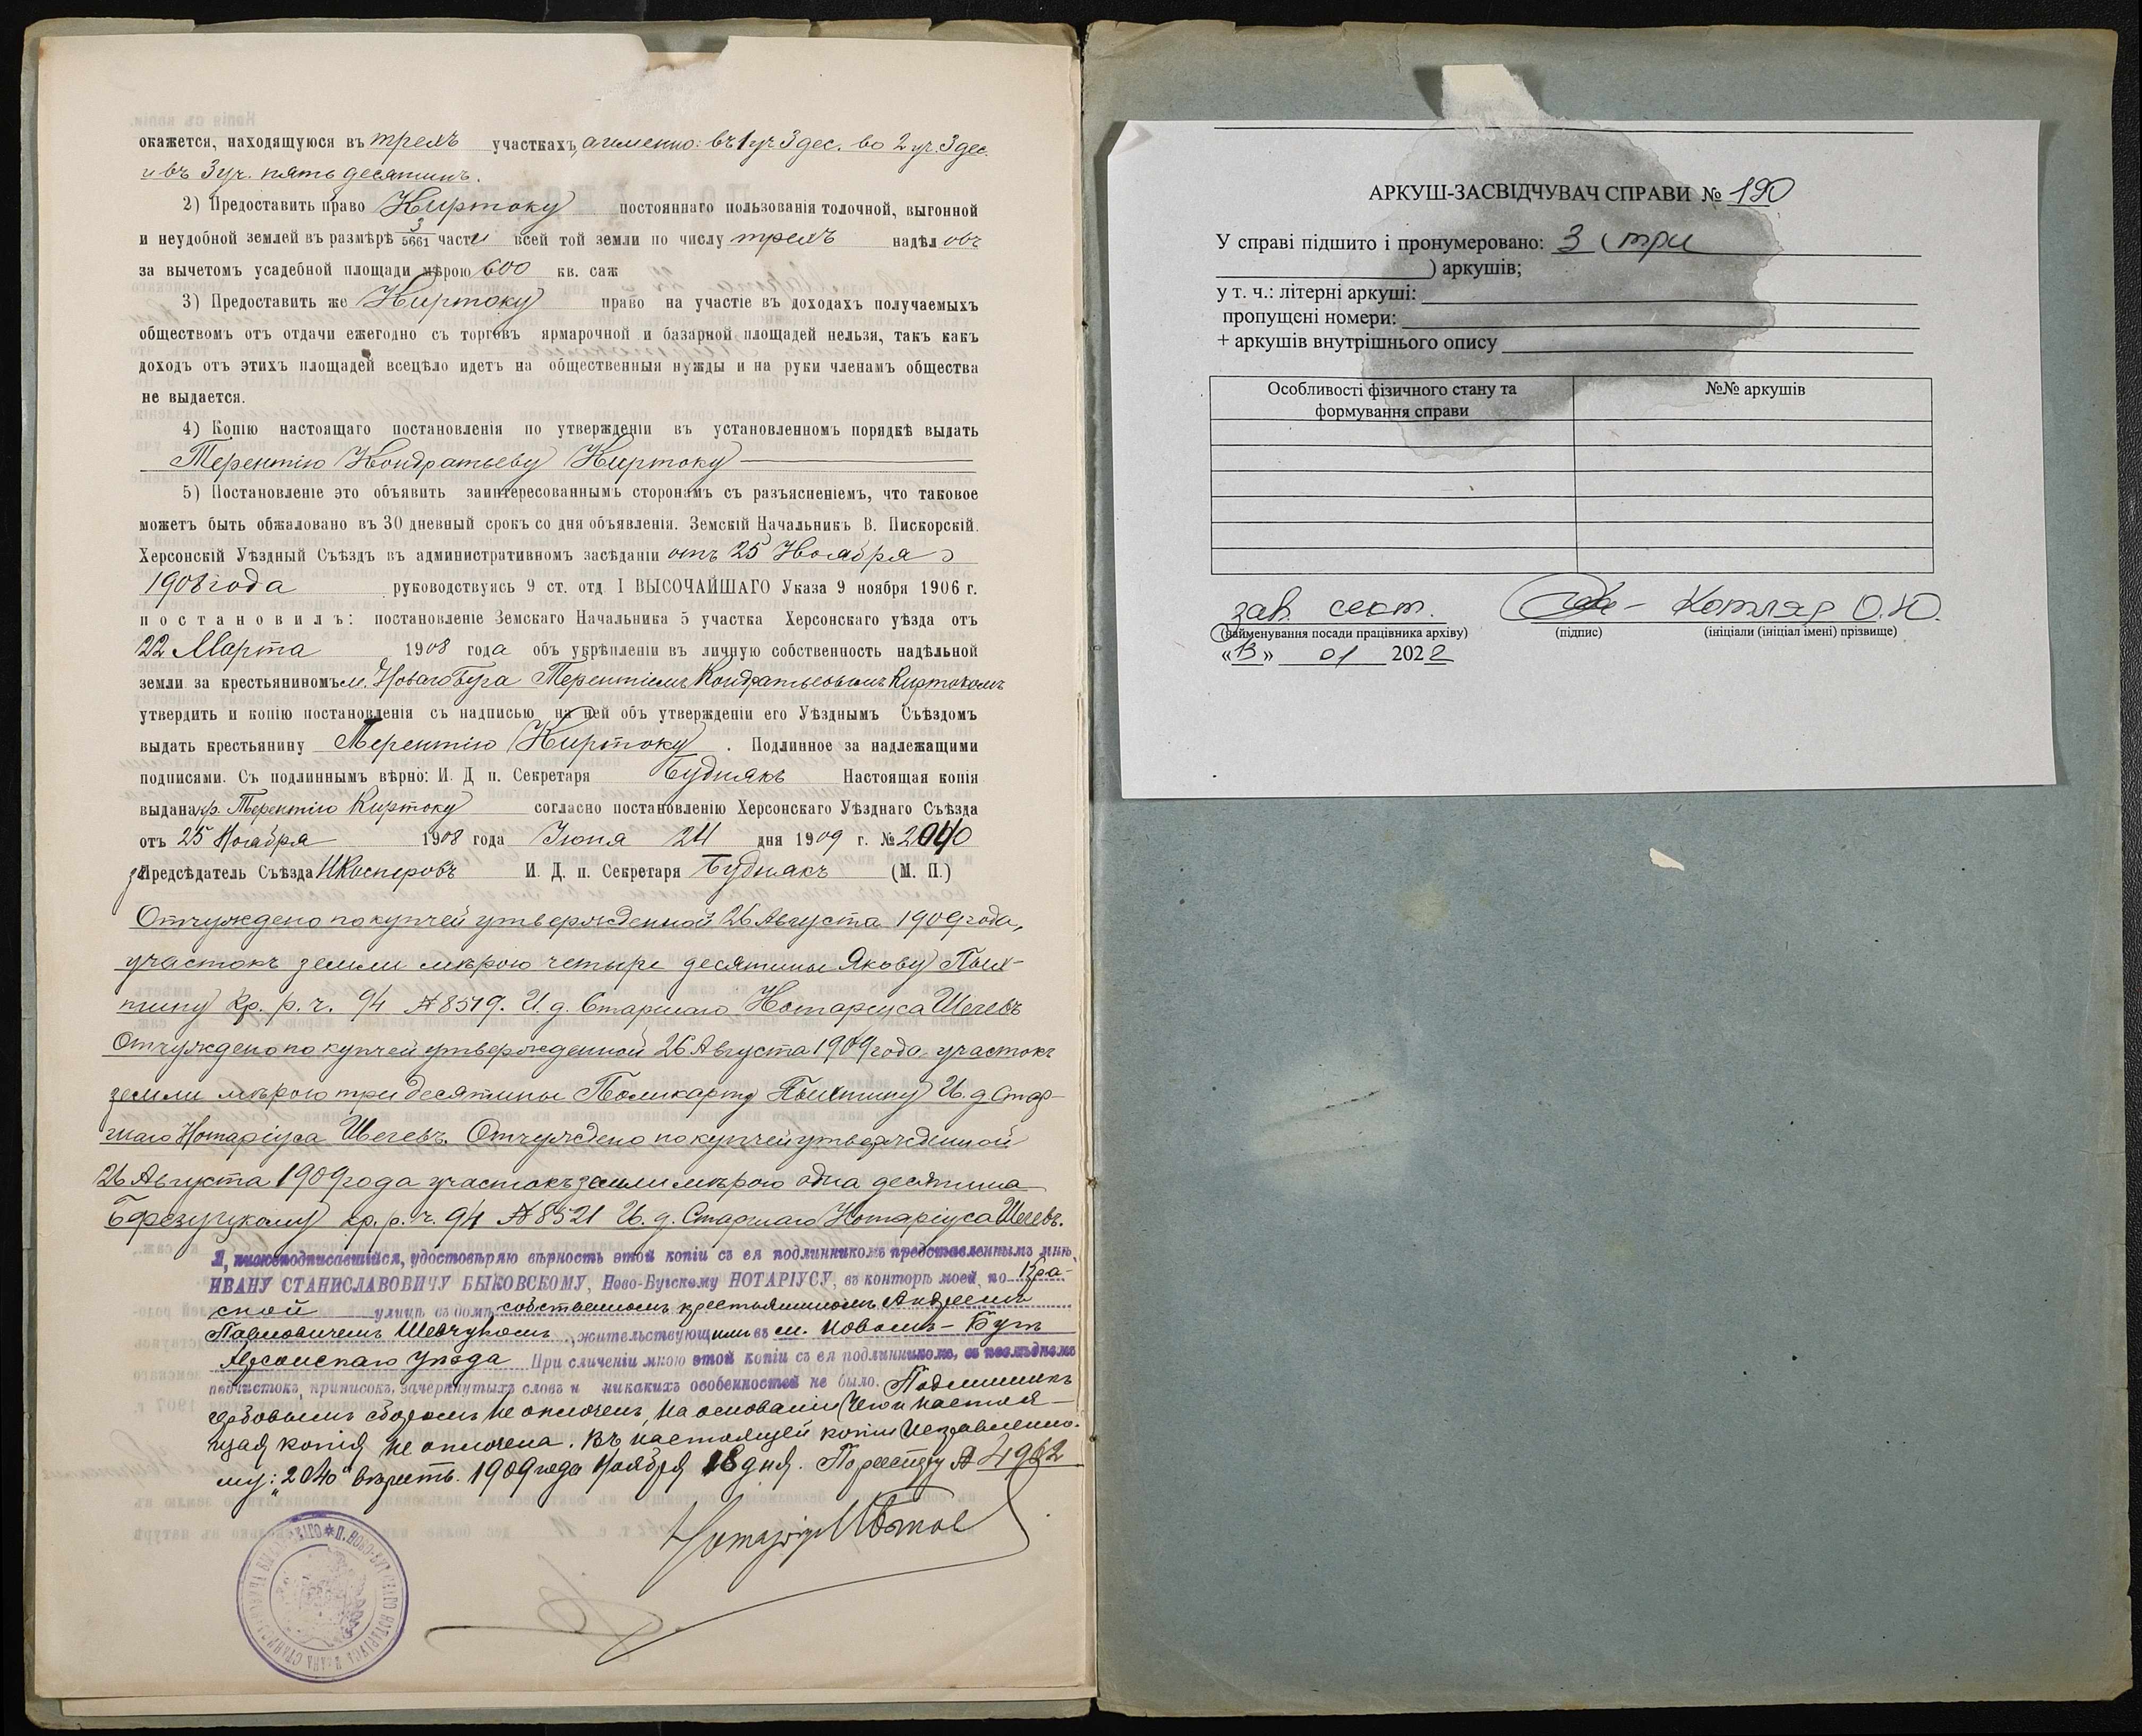 окажется, находящуюся въ трехъ участкахъ, а именно: въ 1 уч 3 дес. во 2 уч. 3 дес.
и въ 3 уч. пять десятинъ.
2) Предоставить право Киртоку постояннаго пользованія толочной, выгонной
и неудобной землей въ размѣрѣ 3/5661 части всей той земли по числу трехъ надѣловъ
за вычетомъ усадебной площади мѣрою 600 кв. саж
3) Предоставить же Киртоку право на участіе въ доходахъ получаемыхъ
обществомъ отъ отдачи ежегодно съ торговъ ярмарочной и базарной площадей нельзя, такъ какъ
доходъ отъ этихъ площадей всецѣло идетъ на общественныя нужды и на руки членамъ общества
не выдается.
4) Копію настоящаго постановленія по утвержденіи въ установленномъ порядкѣ выдать
Терентію Кондратьеву Киртоку
5) Постановленіе это объявить заинтересованнымъ сторонамъ съ разъясненіемъ, что таковое
можетъ быть обжаловано въ 30 дневный срокъ со дня объявленія. Земскій Начальникъ В. Пискорскій.
Херсонскій Уѣздный Съѣздъ въ административномъ засѣданіи отъ 25 Ноября
1908 года руководствуясь 9 ст. отд I ВЫСОЧАЙШАГО Указа 9 ноября 1906 г.
постановилъ: постановленіе Земскаго Начальника 5 участка Херсонскаго уѣзда отъ
22 Марта 1908 года объ укрѣпленіи въ личную собственность надѣльной
земли за крестьяниномъ м. Новаго Буга Терентіемъ Кондратьевымъ Киртокомъ
утвердить и копію постановленія съ надписью на ней объ утвержденіи его Уѣзднымъ Съѣздомъ
выдать крестьянину Терентію Киртоку. Подлинное за надлежащими
подписами. Съ подлиннымъ вѣрно: И. Д п. Секретаря Будникъ Настоящая копія
выдана кр. Терентію Киртоку согласно постановленію Херсонскаго Уѣзднаго Съѣзда
отъ 25 Ноября 1908 года Іюня 24 дня 1909 г. № 2040
за Предсѣдатель Съѣзда И. Д. п. Секретаря Будникъ (М. П.)
Отчуждено по купчей утвержденной 26 Августа 1909 года,
участокъ земли мѣрою четыре десятины Якову
кр. р. ч. 94 № 8519. И. д. Старшаго Нотаріуса Щегевъ
Отчуждено по купчей утвержденной 26 Августа 1909 года участокъ
земли мѣрою три десятины Поликарпу И. д Стар-
шаго Нотаріуса Щегевъ. Отчуждено по купчей утвержденной
26 Августа 1909 года участокъ земли мѣрою одна десятина
Березуцкому кр. р. ч. 94 № 8521 И. д. Старшаго Нотаріуса Щегевъ.
Я, нижеподписавшійся, удостовѣряю вѣрность этой копіи съ ея подлинникомъ представленнымъ мнѣ,
ИВАНУ СТАНИСЛАВОВИЧУ БЫКОВСКОМУ, Ново-Бугскому НОТАРІУСУ, въ конторѣ моей, по Кра-
сной улицѣ въ домѣ собственномъ крестьяниномъ Андреемъ
Павловичемъ Шевчукомъ, жительствующимъ въ м. Новомъ-Бугѣ
Херсонскаго уѣзда При сличеніи мною этой копіи съ ея подлинникомъ, въ послѣднемъ
подчистокъ, приписокъ, зачеркнутыхъ словъ и никакихъ особенностей не было. Подлинникъ
гербовымъ сборомъ не оплоченъ, на основаніи чего и настоя-
щая копія не оплочена. Въ настоящей копіи исправлено.
му: "2040" вѣрить. 1909 года Ноября 18 дня. По реестру № 4962
АРКУШ-ЗАСВІДЧУВАЧ СПРАВИ № 190
У справі підшито і пронумеровано: 3 ( три
) аркушів;
у т. ч.: літерні аркуші:
пропущені номери:
+ аркушів внутрішнього опису
Особливості фізичного стану та формування справи
№№ аркушів
зав. сект. Котляр О.Ю.
(найменування посади працівника архіву) (підпис) (ініціали (ініціал імені) прізвище)
«13» 01 2022